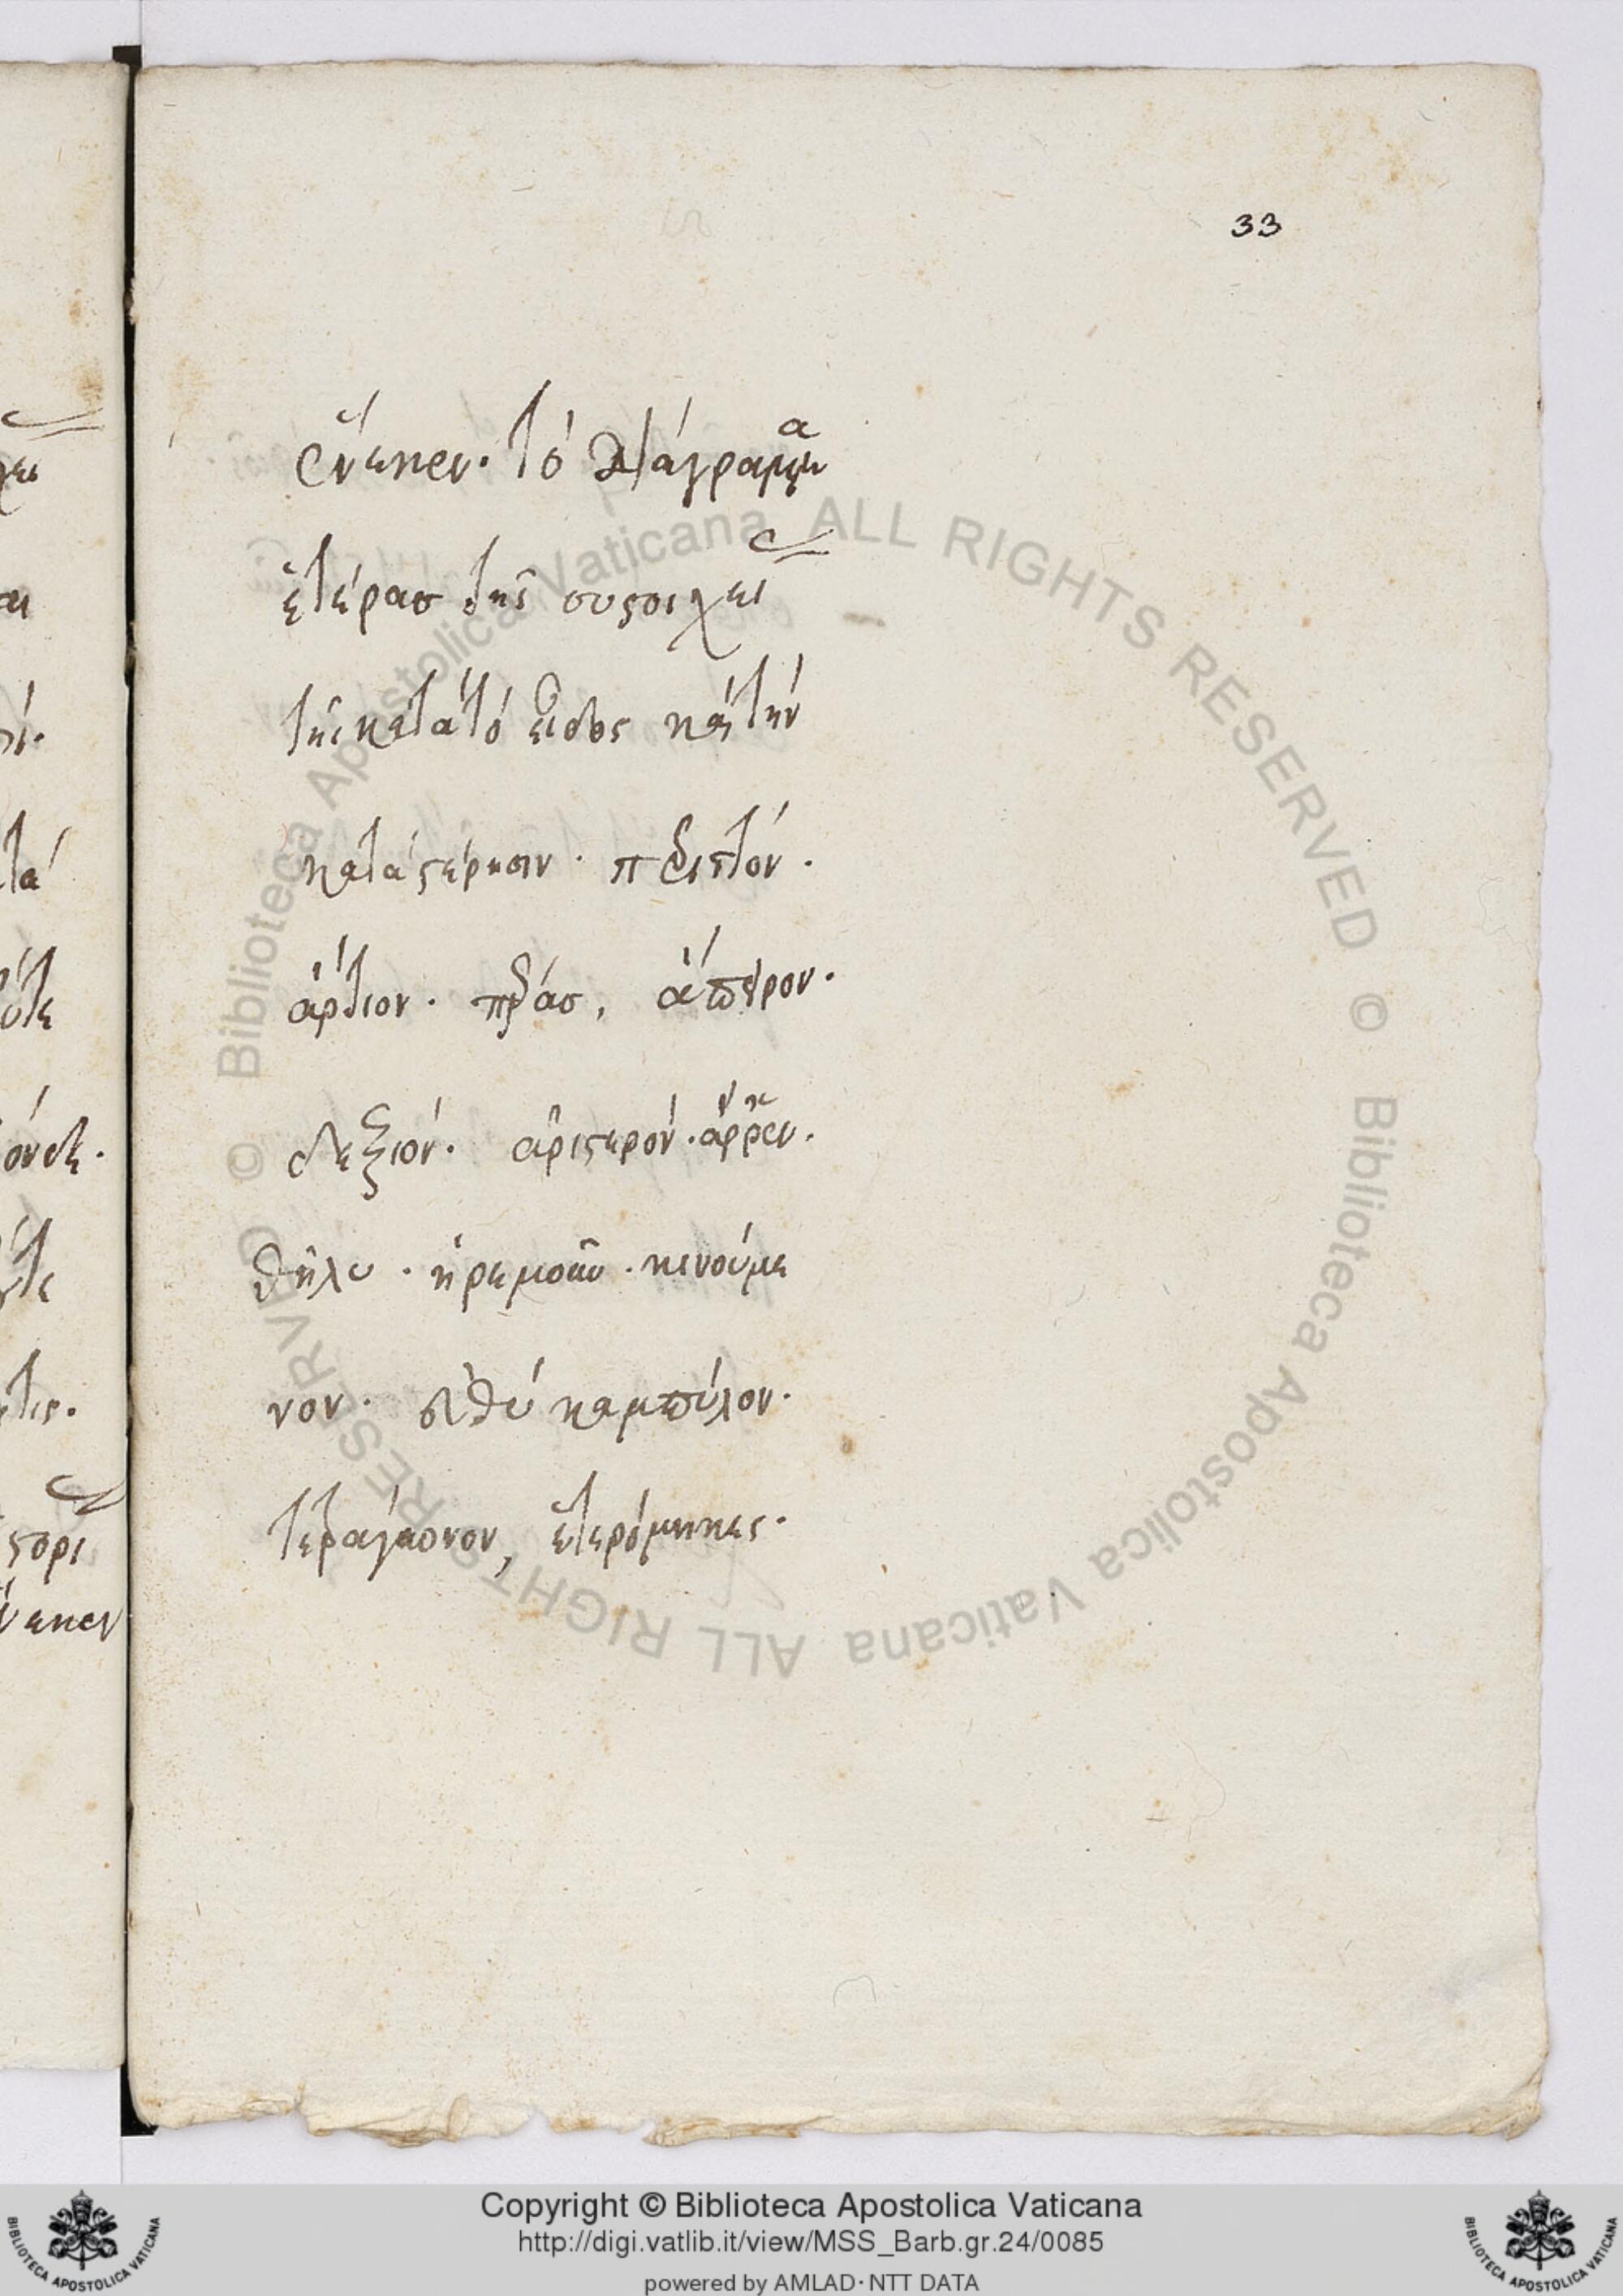 33
ἕνεκεν. τὸ διάγραμμα
ἑτέρας τῆς συστοιχει
τῆς κατὰ τὸ εἶδος καὶ τὴν
κατὰ στέρησιν. περιττόν.
ἄρτιον. πέρας, ἄπειρον.
δεξιόν. ἀριστερόν. ἄρρεν.
θῆλυ. ἠρεμοῦν. κινούμε
νον. εὐθύ καμπύλον.
τετράγωνον, ἑτερόμηκες.
Copyright © Biblioteca Apostolica Vaticana
http://digi.vatlib.it/view/MSS_Barb.gr.24/0085
powered by AMLAD·NTT DATA
BIBLIOTECA APOSTOLICA VATICANA
BIBLIOTECA APOSTOLICA VATICANA
© Biblioteca Apostolica Vaticana ALL RIGHTS RESERVED © Biblioteca Apostolica Vaticana ALL RIGHTS RESERVED